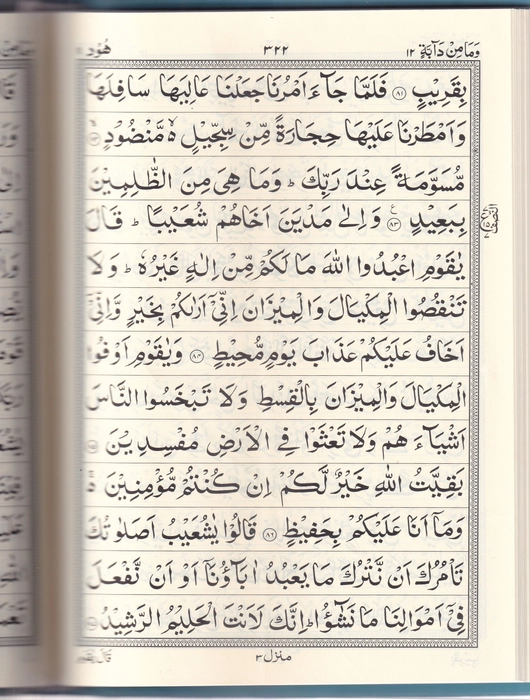 وَمَا مِنْ دَآبَّةٍ ١٢ ٣٢٢ هُوْد ١١
بِقَرِيْبٍ ﴿٨١﴾ فَلَمَّا جَآءَ اَمْرُنَا جَعَلْنَا عَالِيَهَا سَافِلَهَا
وَاَمْطَرْنَا عَلَيْهَا حِجَارَةً مِّنْ سِجِّيْلٍ ۙ مَّنْضُوْدٍ ﴿٨٢﴾
مُّسَوَّمَةً عِنْدَ رَبِّكَ ؕ وَمَا هِىَ مِنَ الظّٰلِمِيْنَ
بِبَعِيْدٍ ﴿٨٣﴾ ع وَاِلٰى مَدْيَنَ اَخَاهُمْ شُعَيْبًا ؕ قَالَ
يٰقَوْمِ اعْبُدُوا اللّٰهَ مَا لَكُمْ مِّنْ اِلٰهٍ غَيْرُهٗ ؕ وَلَا
تَنْقُصُوا الْمِكْيَالَ وَالْمِيْزَانَ اِنِّىْۤ اَرٰىكُمْ بِخَيْرٍ وَّاِنِّىْۤ
اَخَافُ عَلَيْكُمْ عَذَابَ يَوْمٍ مُّحِيْطٍ ﴿٨٤﴾ وَيٰقَوْمِ اَوْفُوا
الْمِكْيَالَ وَالْمِيْزَانَ بِالْقِسْطِ وَلَا تَبْخَسُوا النَّاسَ
اَشْيَآءَهُمْ وَلَا تَعْثَوْا فِى الْاَرْضِ مُفْسِدِيْنَ ﴿٨٥﴾
بَقِيَّتُ اللّٰهِ خَيْرٌ لَّكُمْ اِنْ كُنْتُمْ مُّؤْمِنِيْنَ ۚ
وَمَاۤ اَنَا عَلَيْكُمْ بِحَفِيْظٍ ﴿٨٦﴾ قَالُوْا يٰشُعَيْبُ اَصَلٰوتُكَ
تَاْمُرُكَ اَنْ نَّتْرُكَ مَا يَعْبُدُ اٰبَآؤُنَاۤ اَوْ اَنْ نَّفْعَلَ
فِىْۤ اَمْوَالِنَا مَا نَشٰٓؤُا ؕ اِنَّكَ لَاَنْتَ الْحَلِيْمُ الرَّشِيْدُ ﴿٨٧﴾
النصف
منزل ٣
قَالَ يٰقَوْمِ